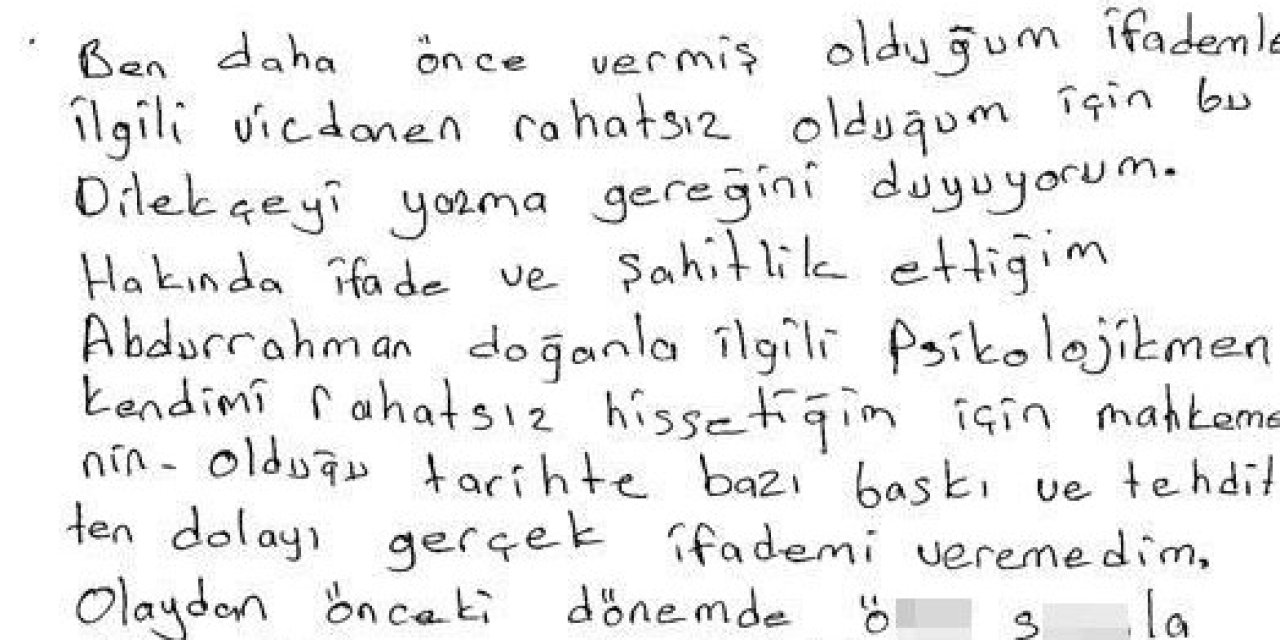 Ben daha önce vermiş olduğum ifademle
ilgili vicdanen rahatsız olduğum için bu
Dilekçeyi yazma gereğini duyuyorum.
Hakında ifade ve Şahitlik ettiğim
Abdurrahman doğanla ilgili Psikolojikmen
kendimi rahatsız hissetiğim için mahkeme
nin- olduğu tarihte bazı baskı ve tehdit
ten dolayı gerçek ifademi veremedim.
Olaydan önceki dönemde ö s la